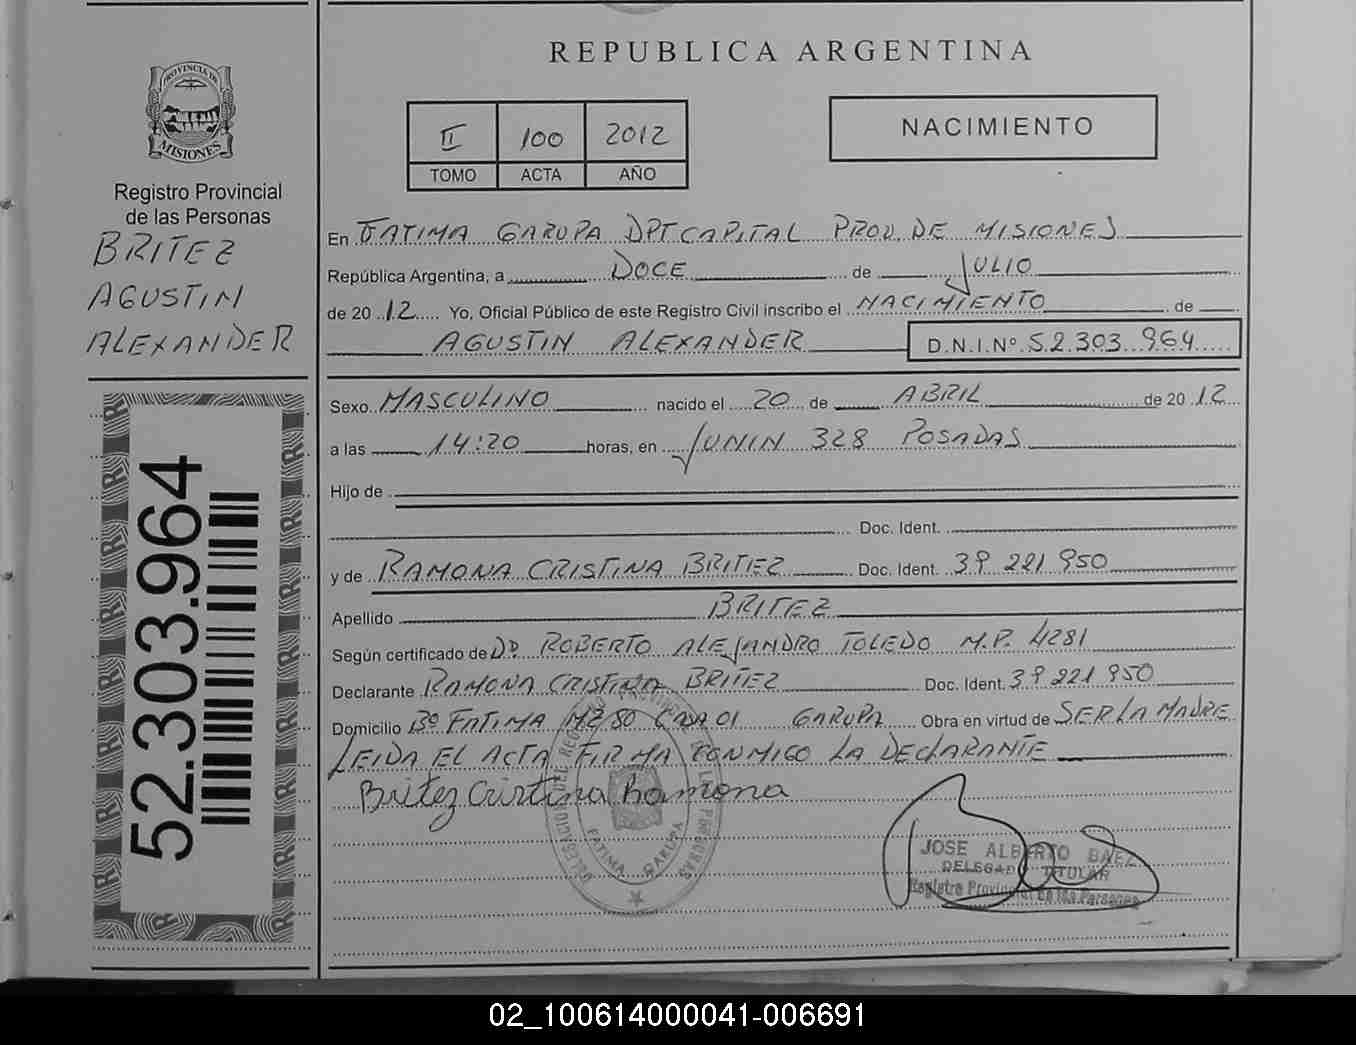 REPUBLICA ARGENTINA
PROVINCIA DE
MISIONES
Registro Provincial
de las Personas
BRITEZ
AGUSTIN
ALEXANDER
52.303.964
II 100 2012
TOMO ACTA AÑO
NACIMIENTO
En FATIMA GARUPA DPT CAPITAL PROV. DE MISIONES
República Argentina, a DOCE de JULIO
de 20 12 Yo, Oficial Público de este Registro Civil inscribo el NACIMIENTO de
AGUSTIN ALEXANDER D.N.I.Nº 52.303.964
Sexo MASCULINO nacido el 20 de ABRIL de 20 12
a las 14:20 horas, en JUNIN 328 POSADAS
Hijo de
Doc. Ident.
y de RAMONA CRISTINA BRITEZ Doc. Ident. 39 221 950
Apellido BRITEZ
Según certificado de Dr. ROBERTO ALEJANDRO TOLEDO M.P. 4281
Declarante RAMONA CRISTINA BRITEZ Doc. Ident. 39 221 950
Domicilio Bº FATIMA MZ 50 CASA 01 GARUPA Obra en virtud de SER LA MADRE
LEIDA EL ACTA FIRMA CONMIGO LA DECLARANTE
Britez Cristina Ramona
FATIMA GARUPA
JOSE ALBERTO BAEZ
DELEGADO TITULAR
Registro Provincial de las Personas
02_100614000041-006691